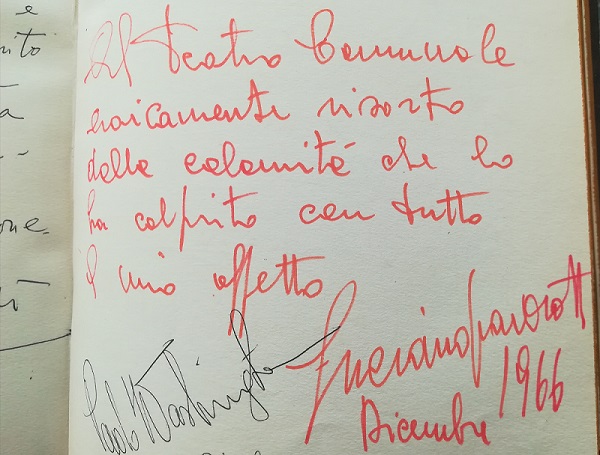 Al Teatro Comunale
eroicamente risorto
dalla calamità che lo
ha colpito con tutto
il mio affetto
Luciano Pavarotti
Paolo Washington
Dicembre 1966